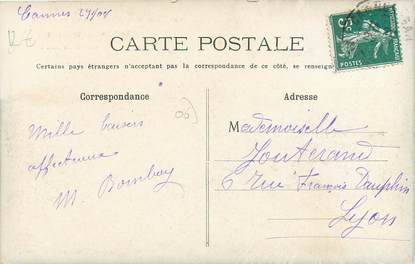 Cannes
CARTE POSTALE
Certains pays étrangers n'acceptant pas la correspondance de ce côté, se renseigner
Correspondance
Adresse
Mille baisers
affectueux
M. Bomboy
Mademoiselle
6 rue François Dauphin
Lyon
5c
POSTES
(06)